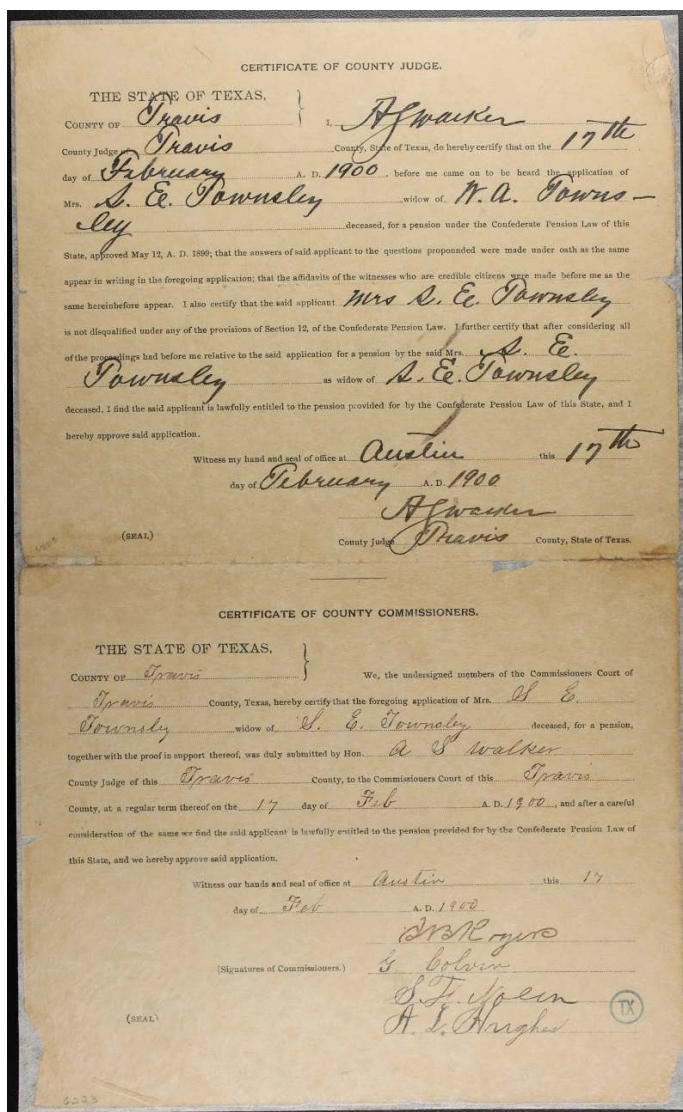 CERTIFICATE OF COUNTY JUDGE.
THE STATE OF TEXAS,
COUNTY OF Travis I, A S Walker
County Judge of Travis County, State of Texas, do hereby certify that on the 17th
day of February A. D. 1900, before me came on to be heard the application of
Mrs. S. E. Townsley widow of W. A. Towns-
ley deceased, for a pension under the Confederate Pension Law of this
State, approved May 12, A. D. 1899; that the answers of said applicant to the questions propounded were made under oath as the same
appear in writing in the foregoing application; that the affidavits of the witnesses who are credible citizens were made before me as the
same hereinbefore appear. I also certify that the said applicant Mrs S. E. Townsley
is not disqualified under any of the provisions of Section 12, of the Confederate Pension Law. I further certify that after considering all
of the proceedings had before me relative to the said application for a pension by the said Mrs. S. E.
Townsley as widow of S. E. Townsley
deceased, I find the said applicant is lawfully entitled to the pension provided for by the Confederate Pension Law of this State, and I
hereby approve said application.
Witness my hand and seal of office at Austin this 17th
day of February A. D. 1900
A S Walker
(SEAL) County Judge Travis County, State of Texas.
CERTIFICATE OF COUNTY COMMISSIONERS.
THE STATE OF TEXAS,
COUNTY OF Travis We, the undersigned members of the Commissioners Court of
Travis County, Texas, hereby certify that the foregoing application of Mrs. S E
Townsly widow of S. E. Townsly deceased, for a pension,
together with the proof in support thereof, was duly submitted by Hon. A S Walker
County Judge of this Travis County, to the Commissioners Court of this Travis
County, at a regular term thereof on the 17 day of Feb A. D. 1900, and after a careful
consideration of the same we find the said applicant is lawfully entitled to the pension provided for by the Confederate Pension Law of
this State, and we hereby approve said application.
Witness our hands and seal of office at Austin this 17
day of Feb A. D. 1900
Rogers
(Signatures of Commissioners.) G Colvin
S. F. Nolen
(SEAL) A. L. Hughes
TX
6223